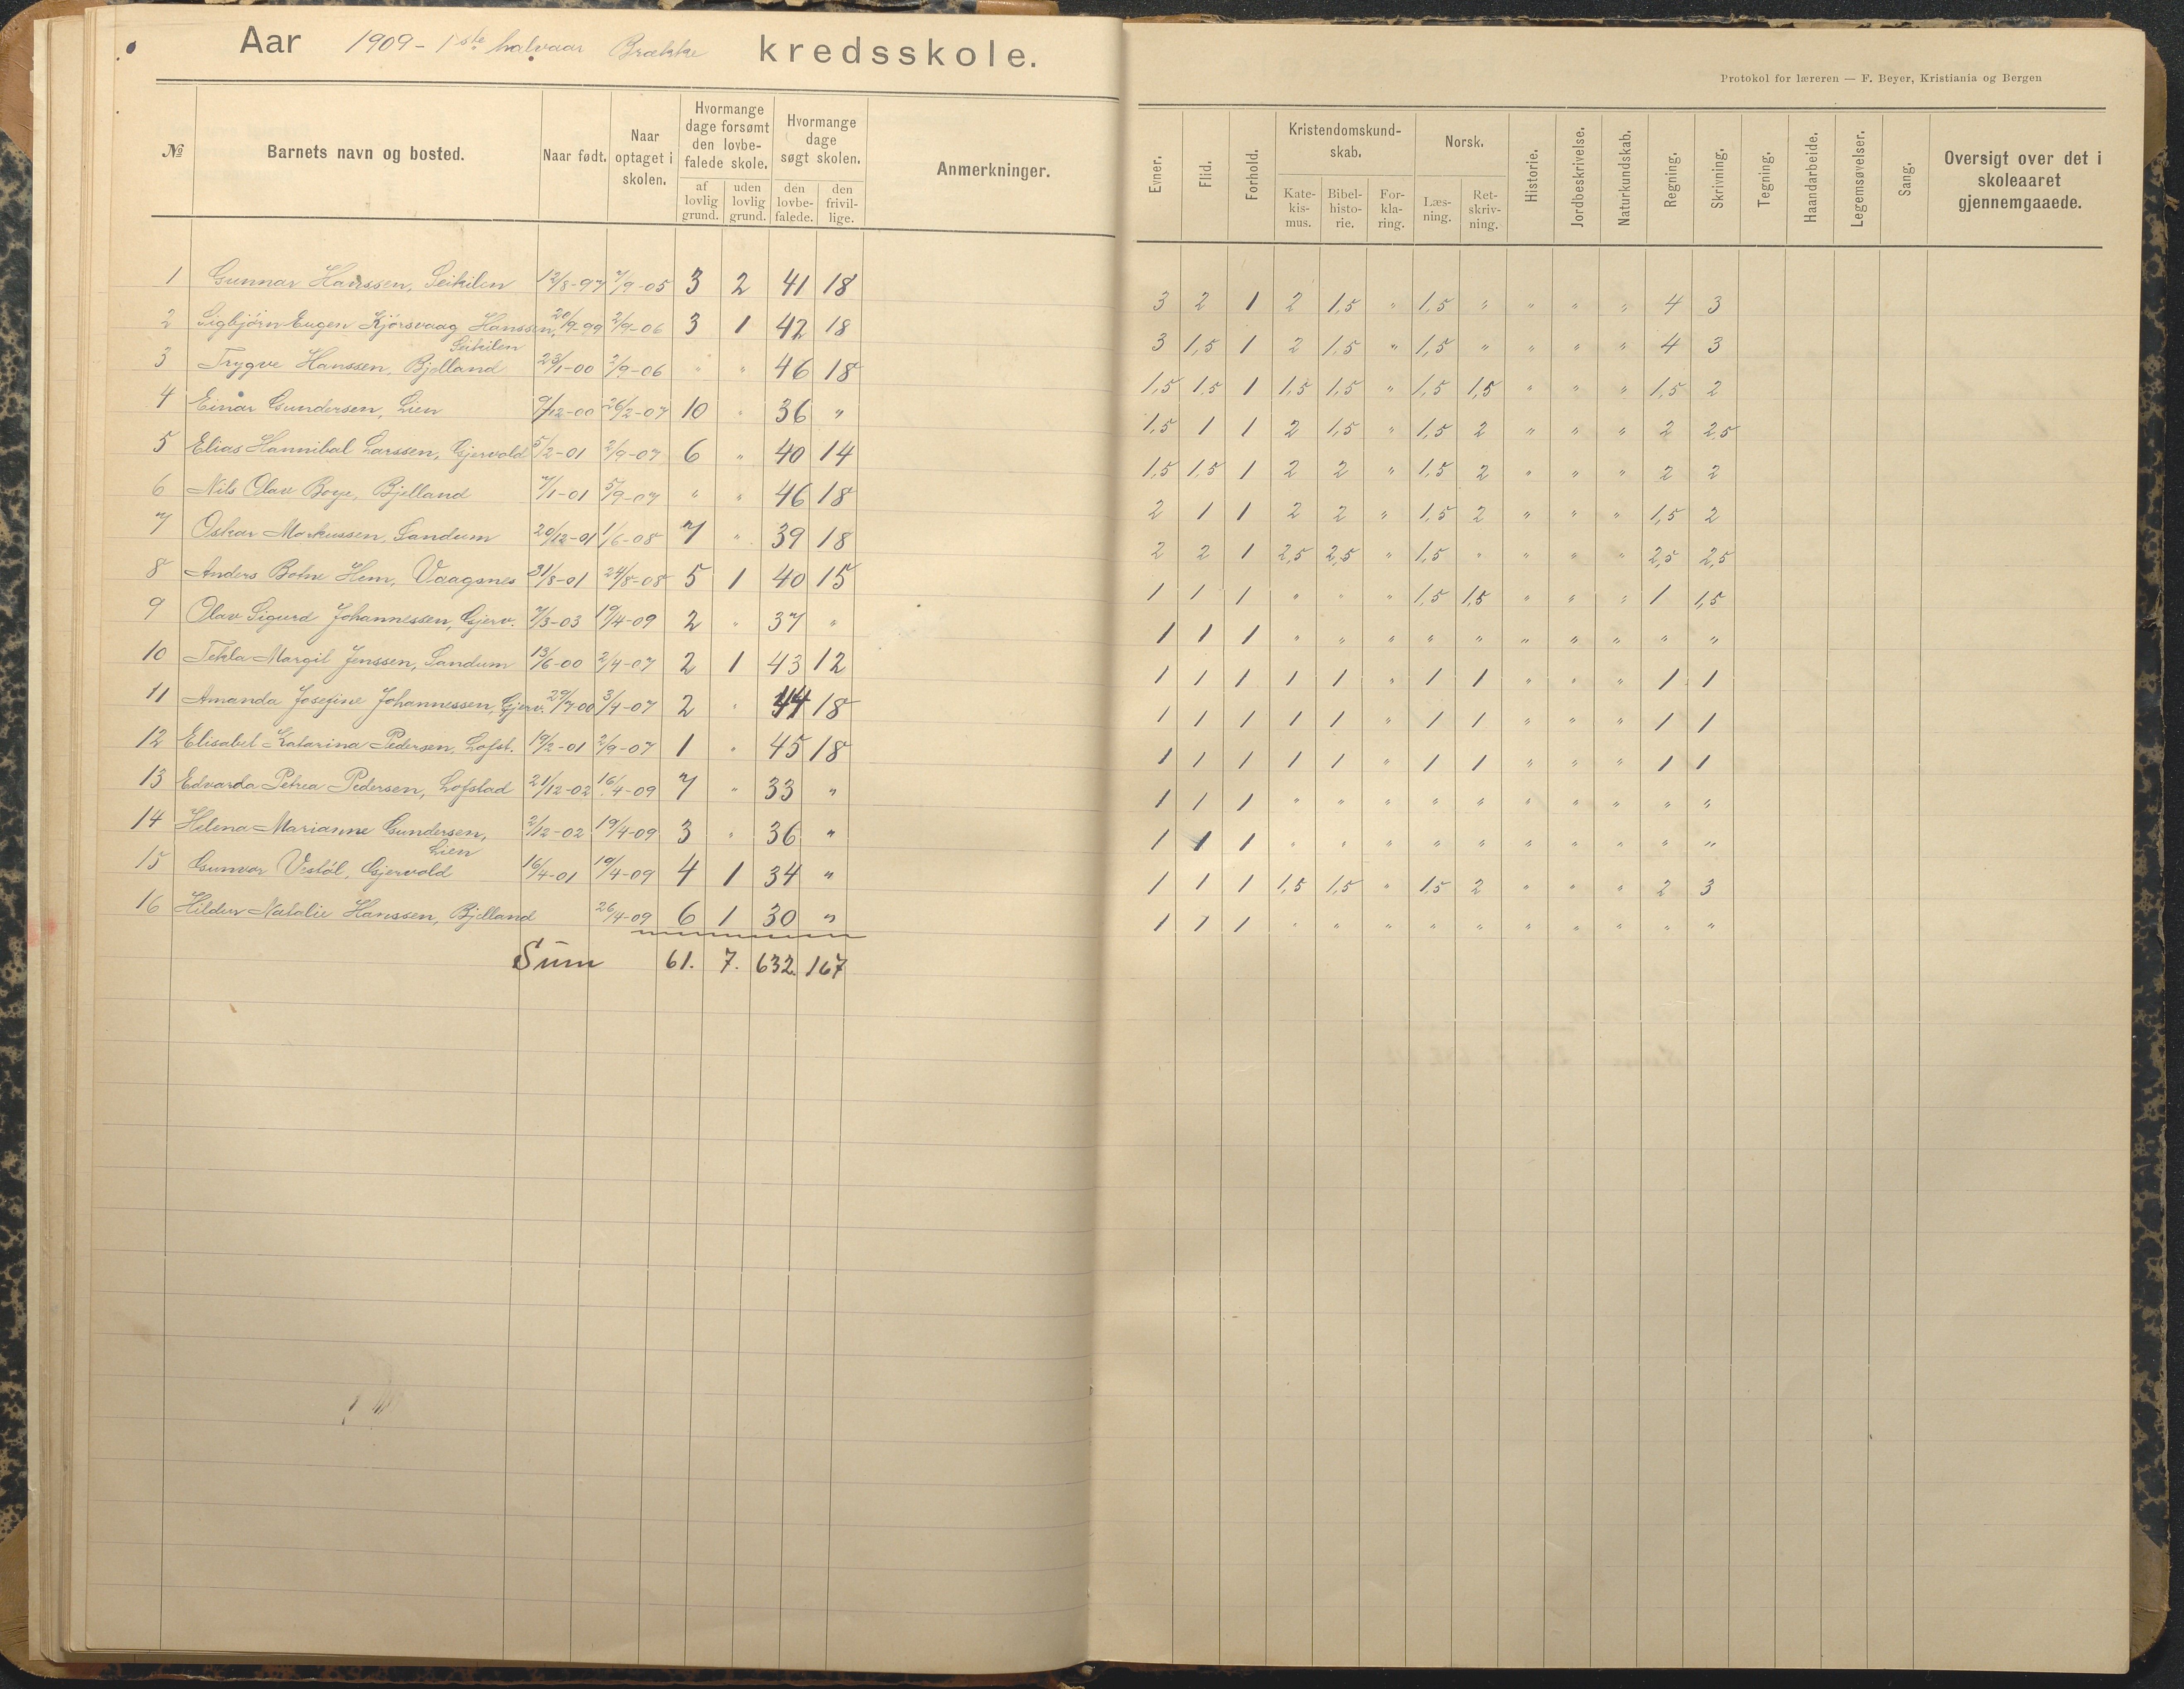 Aar 1909 - 1ste halvaar Brække kredsskole.
Protokol for læreren — F. Beyer, Kristiania og Bergen
№ Barnets navn og bosted. Naar født. Naar optaget i skolen. Hvormange dage forsømt den lovbefalede skole. af lovlig grund. uden lovlig grund. Hvormange dage søgt skolen. den lovbefalede. den frivillige. Anmerkninger.
Evner. Flid. Forhold. Kristendomskundskab. Katekismus. Bibelhistorie. Forklaring. Norsk. Læsning. Retskrivning. Historie. Jordbeskrivelse. Naturkundskab. Regning. Skrivning. Tegning. Haandarbeide. Legemsøvelser. Sang. Oversigt over det i skoleaaret gjennemgaaede.
1 Gunnar Hanssen, Seikilen 12/8-97 7/9-05 3 2 41 18 3 2 1 2 1,5 " 1,5 " " " " 4 3
2 Sigbjörn Eugen Kjörsvaag Hanssen, Seikilen 20/9-99 2/9-06 3 1 42 18 3 1,5 1 2 1,5 " 1,5 " " " " 4 3
3 Trygve Hanssen, Bjelland 23/1-00 2/9-06 " " 46 18 1,5 1,5 1 1,5 1,5 " 1,5 1,5 " " " 1,5 2
4 Einar Gundersen, Lien 9/12-00 26/2-07 10 " 36 " 1,5 1 1 2 1,5 " 1,5 2 " " " 2 2,5
5 Elias Hannibal Larssen, Gjervold 5/2-01 2/9-07 6 " 40 14 1,5 1,5 1 2 2 " 1,5 2 " " " 2 2
6 Nils Olav Boye, Bjelland 7/1-01 5/9-07 " " 46 18 2 1 1 2 2 " 1,5 2 " " " 1,5 2
7 Oskar Markussen, Sandum 20/12-01 1/6-08 7 " 39 18 2 2 1 2,5 2,5 " 1,5 " " " " 2,5 2,5
8 Anders Bohne Hem, Vaagsnes 31/8-01 24/8-08 5 1 40 15 1 1 1 " " " 1,5 1,5 " " " 1 1,5
9 Olav Sigurd Johannessen, Gjerv. 7/3-03 19/4-09 2 " 37 " 1 1 1 " " " " " " " " " "
10 Tekla Margit Jenssen, Sandum 13/6-00 2/4-07 2 1 43 12 1 1 1 1 1 " 1 1 " " " 1 1
11 Amanda Josefine Johannessen, Gjerv. 29/7-00 3/4-07 2 " 44 18 1 1 1 1 1 " 1 1 " " " 1 1
12 Elisabet Katarina Pedersen, Lofst. 19/2-01 2/9-07 1 " 45 18 1 1 1 1 1 " 1 1 " " " 1 1
13 Edvarda Petrea Pedersen, Lofstad 21/12-02 16/4-09 7 " 33 " 1 1 1 " " " " " " " " " "
14 Helena Marianne Gundersen, Lien 2/12-02 19/4-09 3 " 36 " 1 1 1 " " " " " " " " " "
15 Gunvor Vestöl, Gjervold 16/4-01 19/4-09 4 1 34 " 1 1 1 1,5 1,5 " 1,5 2 " " " 2 3
16 Hildur Natalie Hanssen, Bjelland 26/4-09 6 1 30 " 1 1 1 " " " " " " " " " "
Sum 61. 7. 632. 167